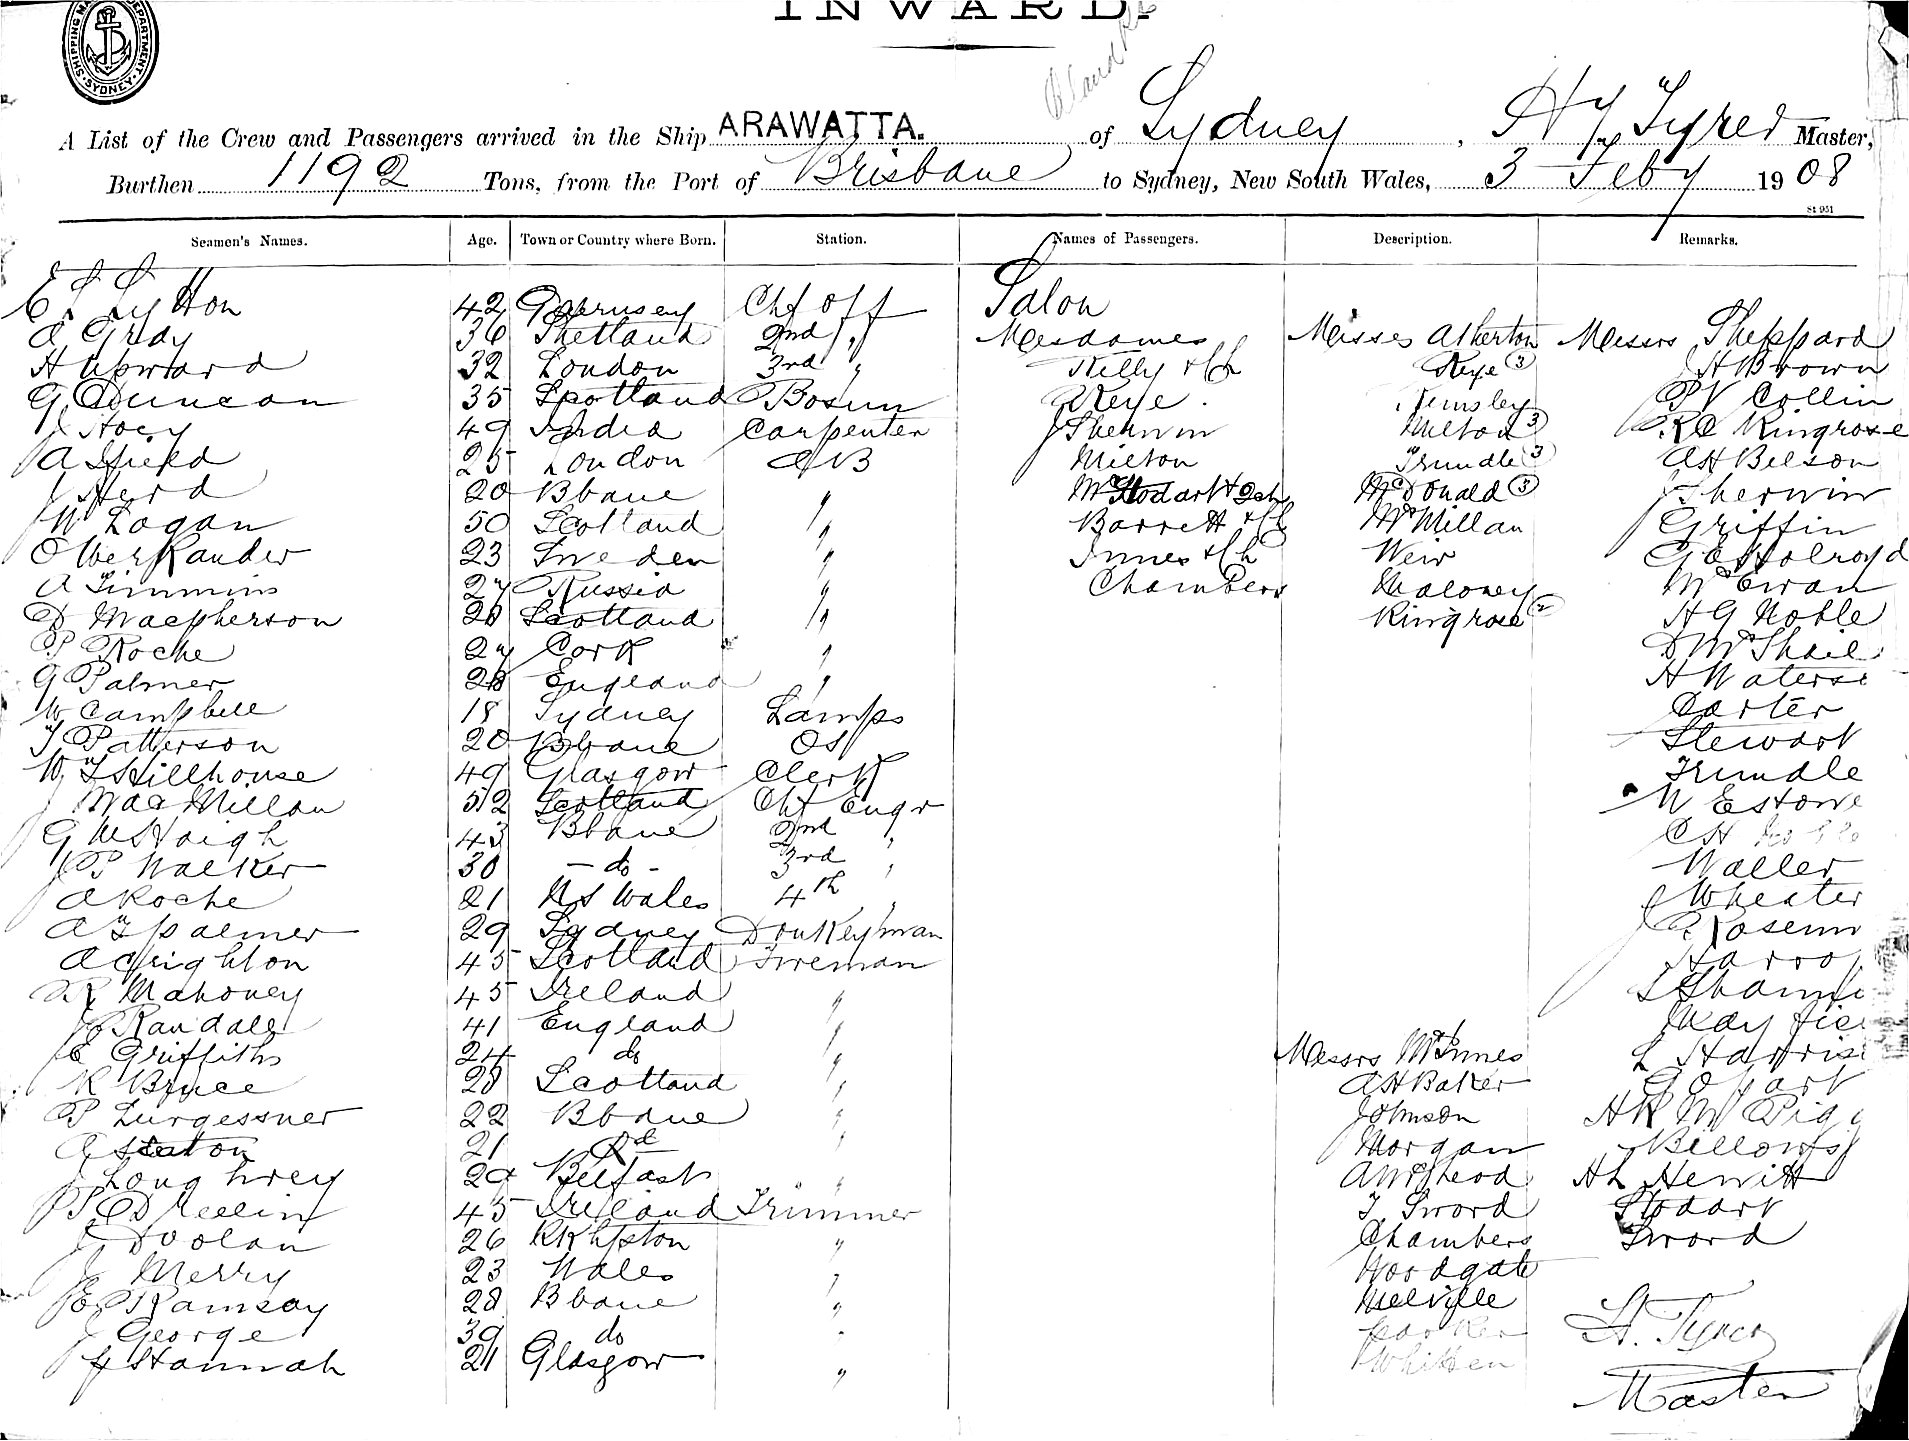 INWARD.
SHIPPING MA DEPARTMENT. SYDNEY
A List of the Crew and Passengers arrived in the Ship ARAWATTA. of Sydney, Master,
Burthen 1192 Tons, from the Port of Brisbane to Sydney, New South Wales, 3 Feby 1908
St 951
Seamen's Names. Age. Town or Country where Born. Station. Names of Passengers. Description. Remarks.
Lytton 42 Guernsey Chf off Salon
A Gray 36 Shetland 2nd " Mesdames Misses Atherton Messrs Sheppard
H Upward 32 London 3rd " Kelly & Ch Keye 3 H Brown
G Duncan 35 Scotland Bosun Keye. Kemsley P V Collin
J Hoey 49 India Carpenter J Sherwin Milton 3 R C Kingrose
A Hield 25 London AB Milton Trundle 3 A H Belson
J Herd 20 Bbane " McDonald 3 J Sherwin
W Logan 50 Scotland " Barrett & Ch McMillan Griffin
23 Sweden " Innes & Ch Weir G E Holroyd
A Timmins 27 Russia " Chambers Maloney McEwan
D Macpherson Scotland " Kingrose 2 H G Noble
P Roche 27 Cork " D McPhail
G Palmer England " H Waters
W Campbell 18 Sydney Lamps Carter
T Patterson 20 Bbane OS Stewart
W T Hillhouse 49 Glasgow Clerk Trundle
J MacMillan 52 Scotland Chf Engr W E Stowe
G McHaigh 43 Bbane 2nd " C H
J P Walker 30 - do - 3rd " Waller
A Roche 21 N S Wales 4th " J Wheater
A T Palmer 29 Sydney Donkeyman
A Crighton 45 Scotland Fireman
R Mahoney 45 Ireland "
J Randall 41 England "
E Griffiths 24 do " Messrs McInnes L Harris
R Bruce 28 Scotland " A H Baker
P Lurgessner 22 Bbane " Johnson
A Seaton 21 " Morgan Bellows
J Loughrey 29 Belfast " A McLeod A L Hewitt
Ireland Trimmer T. Sword Stodart
J Doolan 26 " Chambers Sword
J Merry 23 Wales " Woodgate
E Ramsay 28 Bbane " Melville
J George 39 do " Parker H. Tyrer
J Hannah 21 Glasgow " Whitten Master